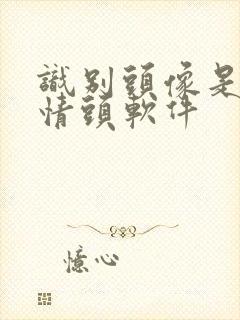 識別頭像是
情頭軟件
憶心